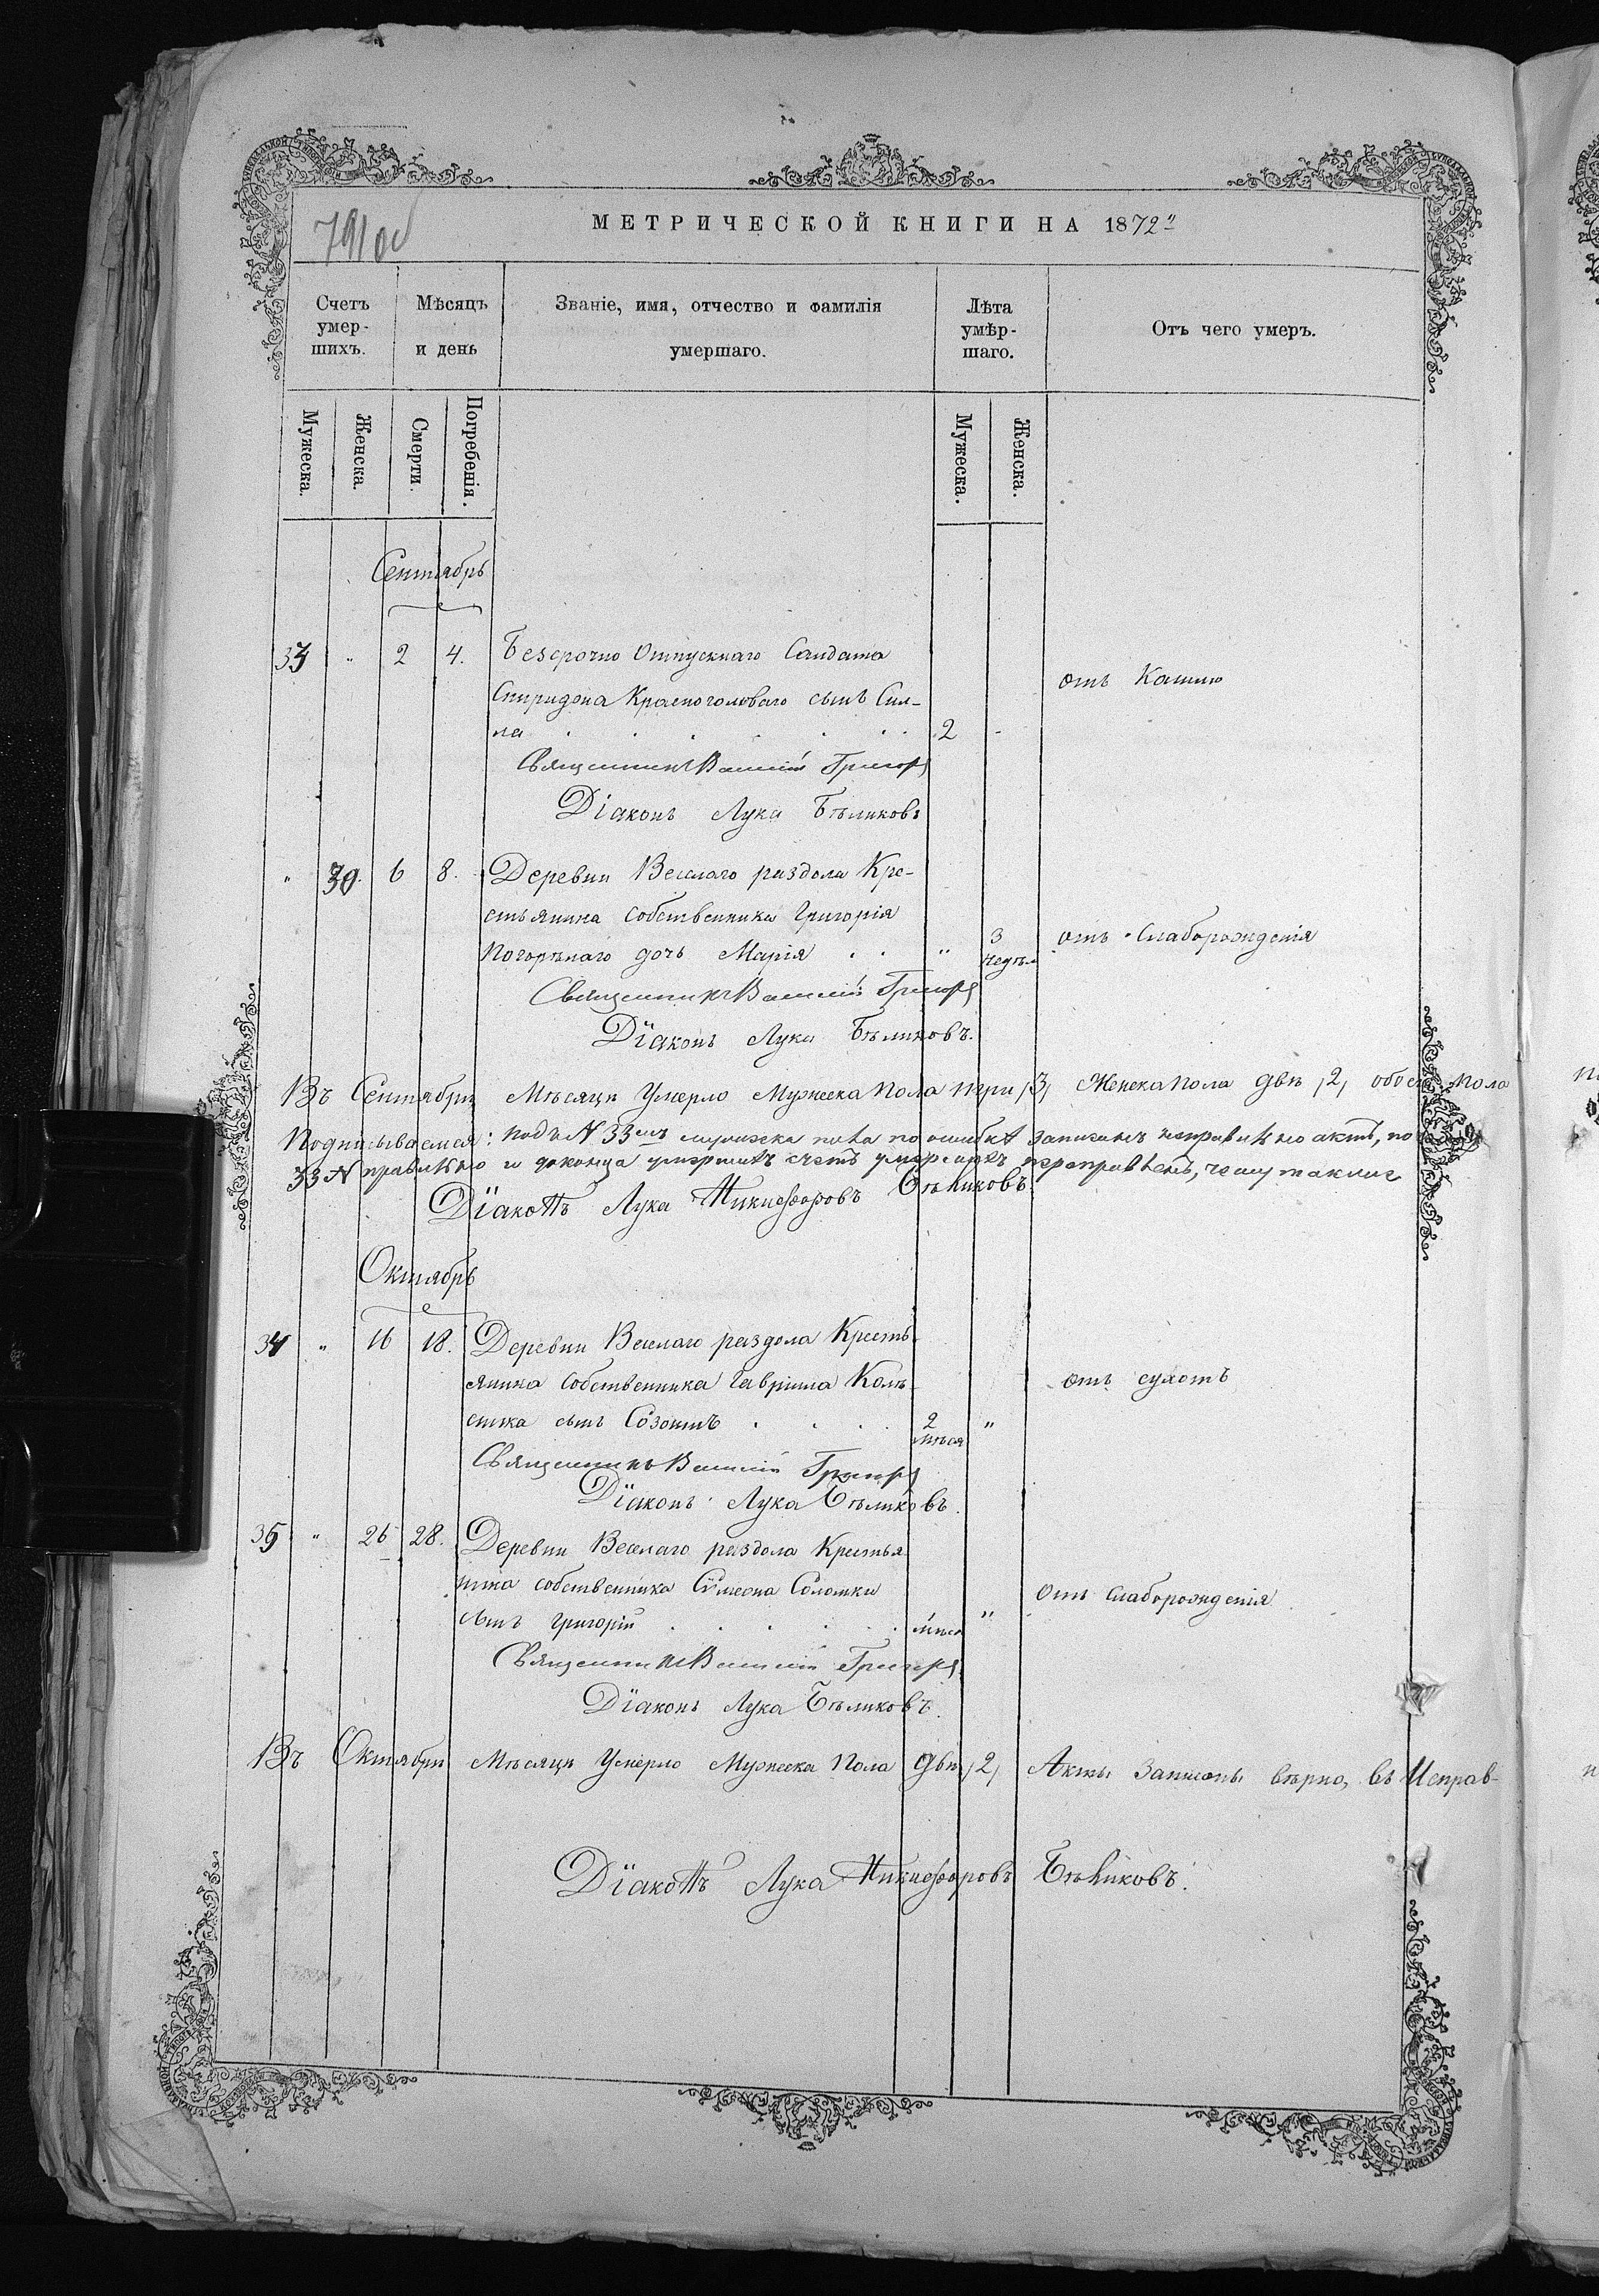 791 об
МЕТРИЧЕСКОЙ КНИГИ НА 1872
Счетъ умер-шихъ.
Мѣсяцъ и день
Званіе, имя, отчество и фамилія умершаго.
Лѣта умѣр-шаго.
Отъ чего умеръ.
Мужеска.
Женска.
Смерти.
Погребенія.
Мужеска.
Женска.
Сентябрь
33 " 2 4. Безсрочно Отпускнаго Салдата
Спиридона Красноголоваго сынъ Сил-
ла 2 -
отъ Кашлю
Священникъ Василій Григор
Діаконъ Лука Бѣликовъ
" 30. 6 8. Деревни Веселаго раздола Кре-
стьянина собственника Григорія
Погорѣлаго дочь Марія " 3 недѣл
отъ Слаборожденія
Священникъ Василій Григор
Діаконъ Лука Бѣликовъ.
Въ Сентябри Мѣсяци Умерло Мужеска Пола три ,3, Женска пола двѣ ,2, обоего пола
Подписываемся: подъ N 33емъ мужеска пола по ошибкѣ записанъ неправильно актъ, но
33 N правильно и до конца умершихъ счетъ умершихъ переправленъ, чему такъ
Діаконъ Лука Никифоровъ Бѣликовъ
Октябрь
34 " 16 18. Деревни Веселаго раздола Кресть-
янина собственника Гавріила Кол
сынъ Созонтъ 2 мѣся "
отъ сухотъ
Священникъ Василій Григор
Діаконъ Лука Бѣликовъ.
35 " 26 28. Деревни Веселаго раздола Крестья
нина собственника Сѵмеона Соломки
сынъ Григорій мѣся "
Отъ Слаборожденія
Священникъ Василій Григор
Діаконъ Лука Бѣликовъ.
Въ Октябри Мѣсяци Умерло Мужеска Пола Два ,2, Акты Записаны вѣрно, въ Исправ-
Діаконъ Лука Никифоровъ Бѣликовъ.